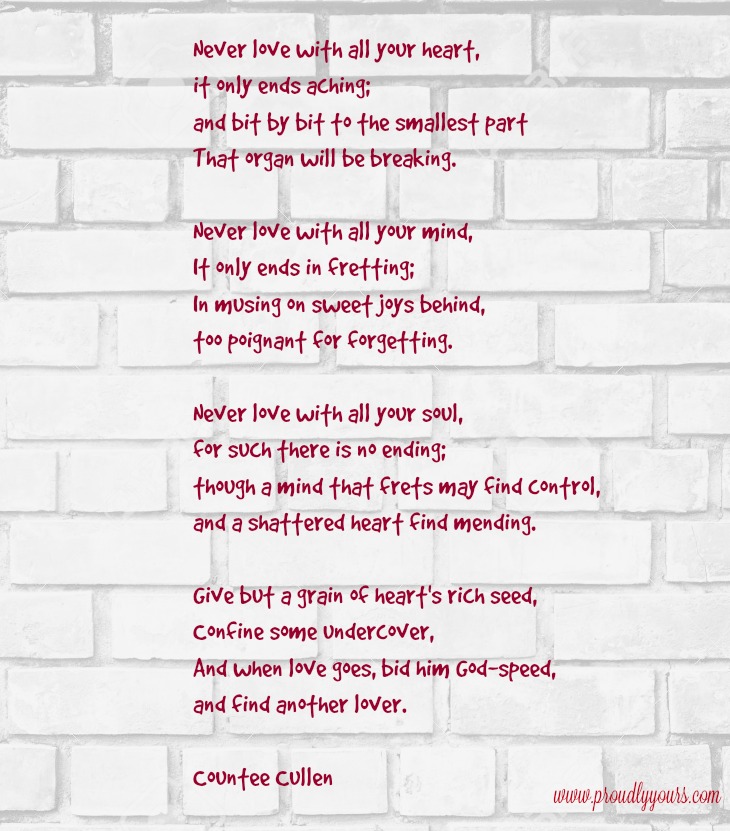 Never love with all your heart,
it only ends aching;
and bit by bit to the smallest part
That organ will be breaking.

Never love with all your mind,
It only ends in fretting;
In musing on sweet joys behind,
too poignant for forgetting.

Never love with all your soul,
for such there is no ending;
though a mind that frets may find control,
and a shattered heart find mending.

Give but a grain of heart's rich seed,
Confine some undercover,
And when love goes, bid him God-speed,
and find another lover.

Countee Cullen
www.proudlyyours.com